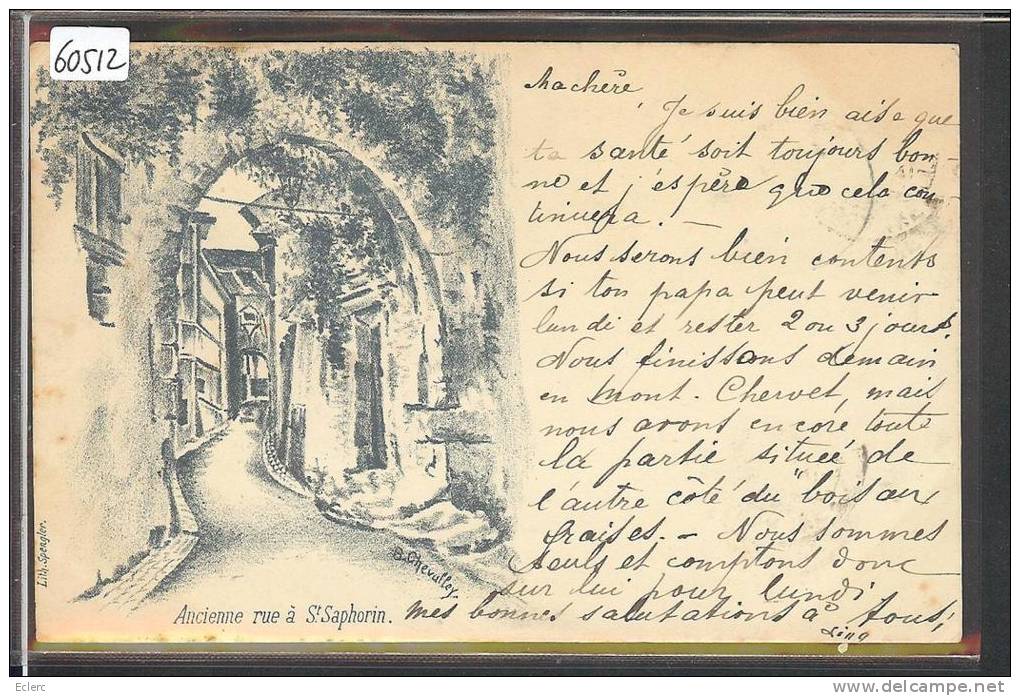 60512
Ma chère
Je suis bien aise que
ta santé soit toujours bon-
ne et j'espère que cela con-
tinuera. -
Nous serons bien contents
si ton papa peut venir
lundi et rester 2 ou 3 jours.
Nous finissons demain
en Mont-Chervet, mais
nous avons encore toute
la partie située de
l'autre côté du "bois aux
fraises. - Nous sommes
seuls et comptons donc
sur lui pour lundi
mes bonnes salutations à tous,
B. Chevalley.
Lith. Spengler.
Ancienne rue à St Saphorin.
Eclerc
http://www.delcampe.net